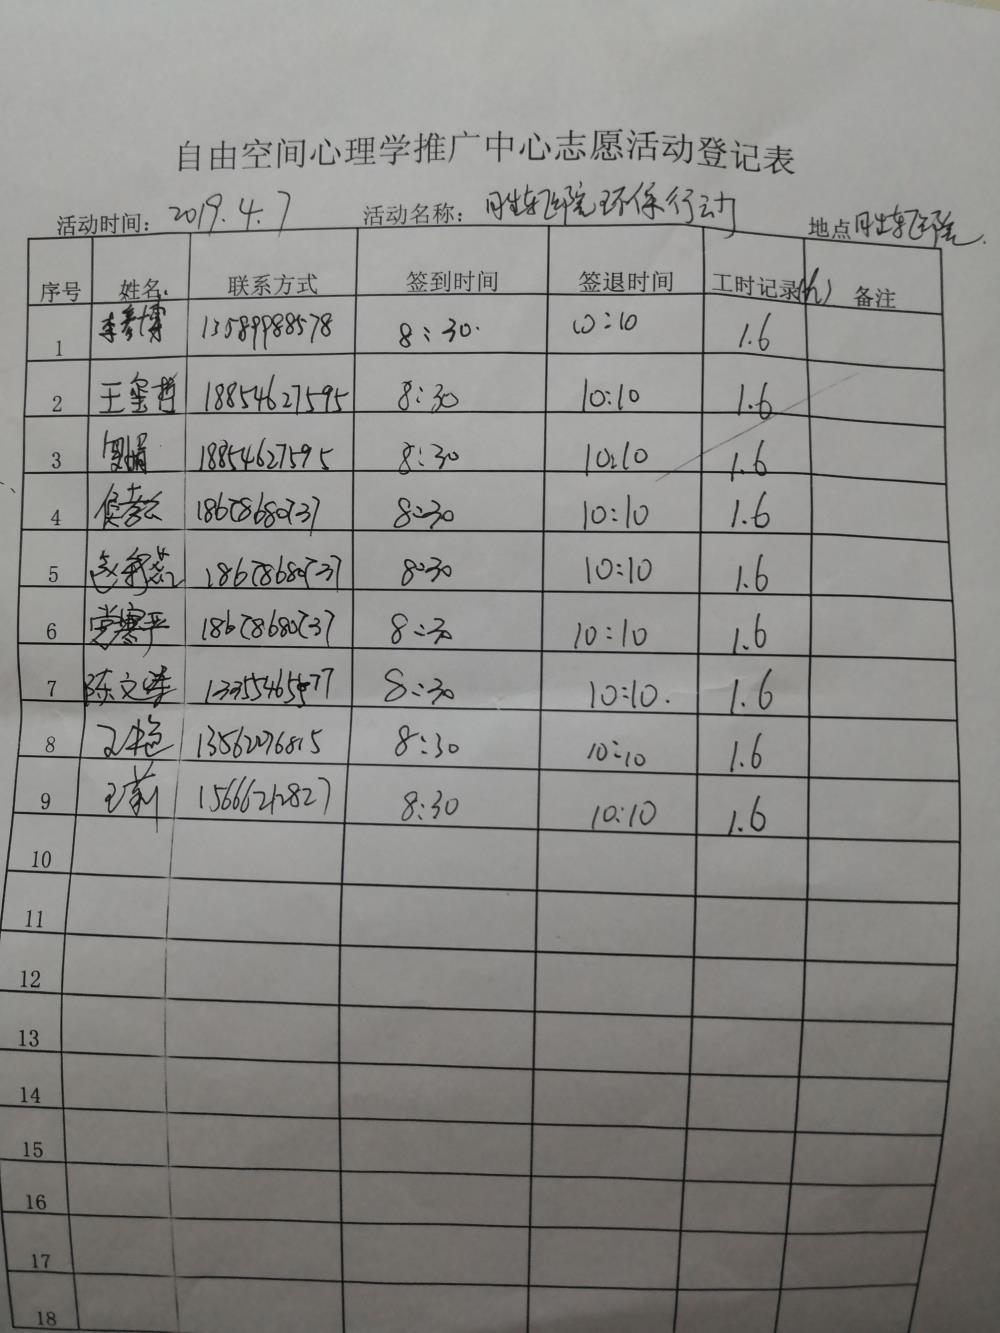 自由空间心理学推广中心志愿活动登记表
活动时间：2019.4.7 活动名称：胜东医院环保行动 地点胜东医院.
序号 姓名 联系方式 签到时间 签退时间 工时记录(h) 备注
1 李彦博 13589988578 8:30 10:10 1.6
2 王玺哲 18854627595 8:30 10:10 1.6
3 18854627595 8:30 10:10 1.6
4 侯孝云 8:30 10:10 1.6
5 8:30 10:10 1.6
6 8:30 10:10 1.6
7 陈文 8:30 10:10. 1.6
8 8:30 10:10 1.6
9 王莉 15666212827 8:30 10:10 1.6
10
11
12
13
14
15
16
17
18